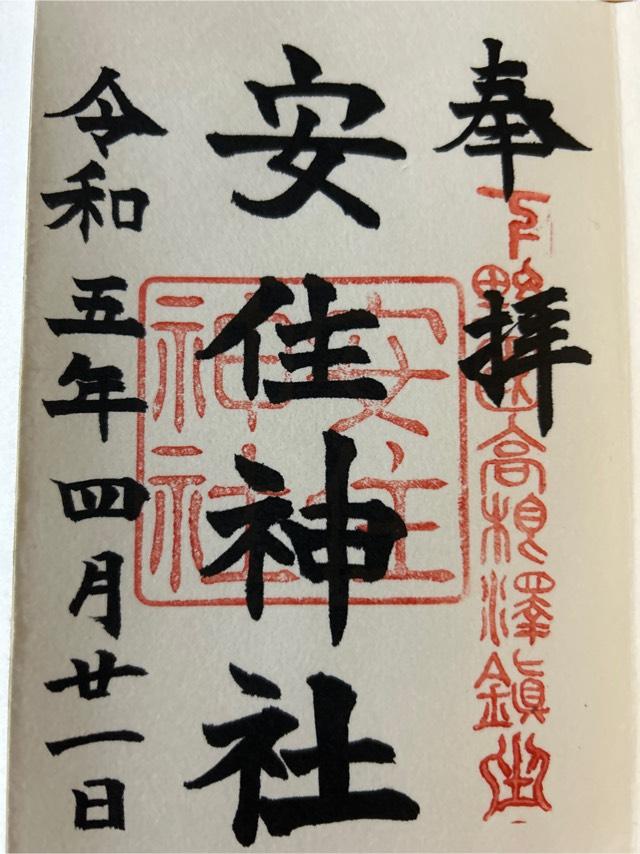 奉拝
安住神社
令和五年四月廿一日
安住
神社
高根澤鎮